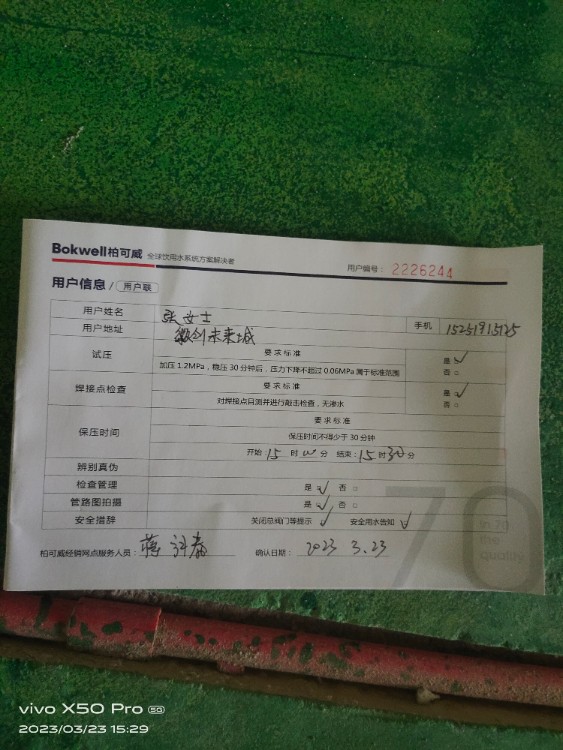 Bokwell柏可威 全球饮用水系统方案解决者
用户编号： 2226244
用户信息 / 用户联
用户姓名 张女士 手机 15251915125
用户地址 微创未来城
试压 要求标准 是 ✓
加压1.2MPa，稳压30分钟后，压力下降不超过0.06MPa属于标准范围 否 □
焊接点检查 要求标准 是 ✓
对焊接点目测并进行敲击检查，无渗水 否 □
保压时间 要求标准
保压时间不得少于30分钟
开始：15 时 00 分 结束：15 时 30 分
辨别真伪
检查管理 是 ✓ 否 □
管路图拍摄 是 ✓ 否 □
安全措辞 关闭总阀门等提示 ✓ 安全用水告知 ✓
柏可威经销网点服务人员： 蒋 确认日期： 2023 3.23
70
In 70
the
quality
vivo X50 Pro 5G
2023/03/23 15:29